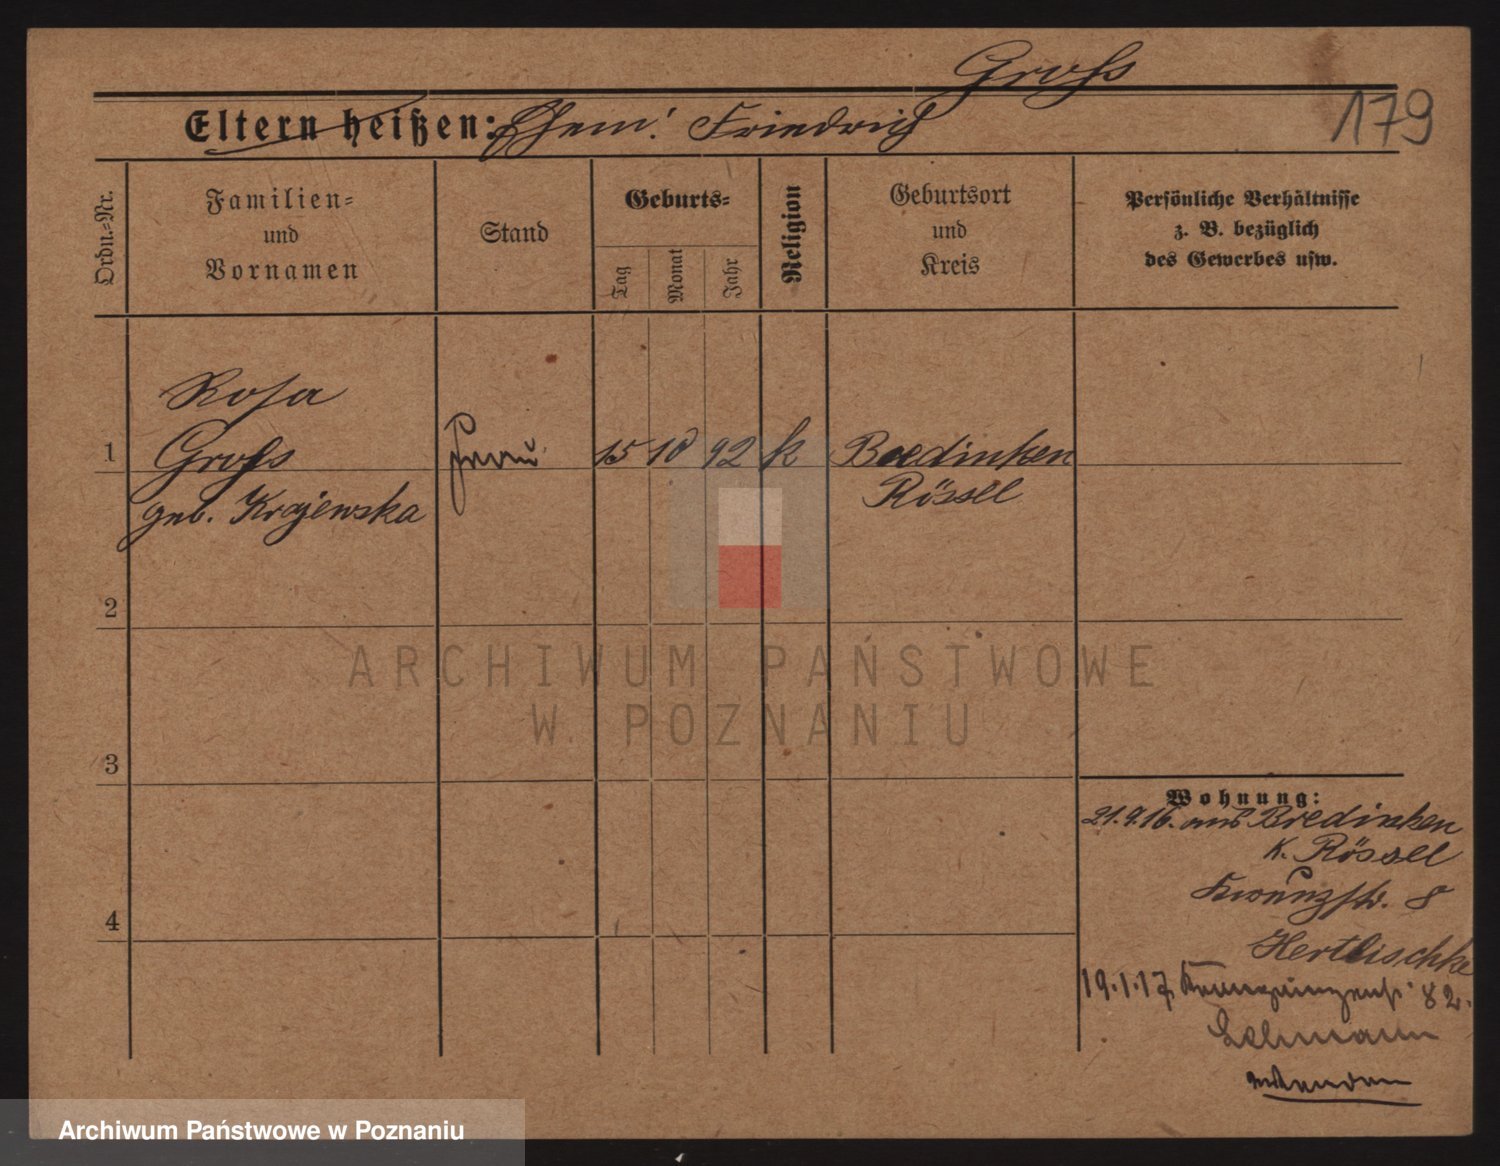 Groß
Eltern heißen: Ehem: Friedrich
179
Ordn.=Nr.
Familien=
und
Vornamen
Stand
Geburts=
Tag
Monat
Jahr
Religion
Geburtsort
und
Kreis
Persönliche Verhältnisse
z. B. bezüglich
des Gewerbes usw.
Rosa
1 Groß Frau 15 10 92 k Bredinken
geb. Krajewska Rössel
2
3
4
Wohnung:
21.9.16. aus Bredinken
K. Rössel
8
Hertlischke
19.1.17. Kronprinzenst. 82.
Lehmann
wenden
ARCHIWUM PAŃSTWOWE
W POZNANIU
Archiwum Państwowe w Poznaniu